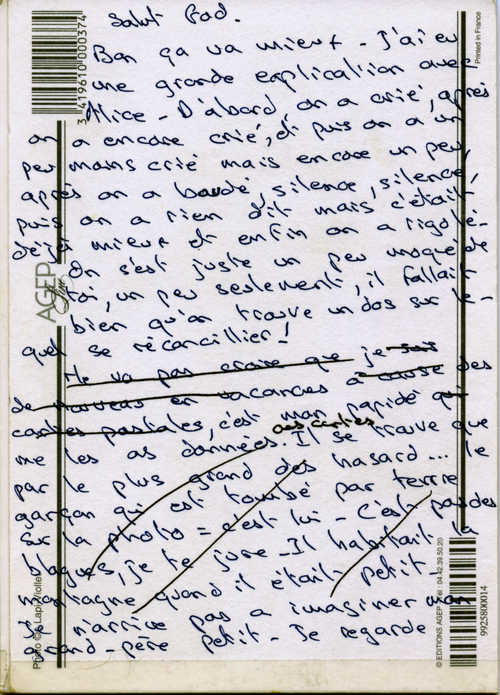 Salut Fred.
Bon ça va mieux - J'ai eu
une grande explication avec
Alice - D'abord on a crié, après
on a encore crié, et puis on a un
peu moins crié mais encore un peu,
après on a boudé, silence, silence,
puis on a rien dit mais c'était
déjà mieux et enfin on a rigolé.
On s'est juste un peu moqué de
toi, un peu seulement, il fallait
bien qu'on trouve un dos sur le-
quel se réconcillier !
Ne va pas croire que je suis
de nouveau en vacances à cause des
cartes postales, c'est mon papidé qui
aux cartes
me les as données. Il se trouve que
par le plus grand des hasard... le
garçon qui est tombé par terre
sur la photo = c'est lui - C'est pas des
blagues, je te jure - Il habitait la
montagne quand il était petit.
n'arrive pas a imaginer mon
grand-père petit - Je regarde
3 419610 000374
Printed in France
AGEP
Photo © Lapi/Viollet
© EDITIONS AGEP Tél : 04.42.39.50.20
9925800014